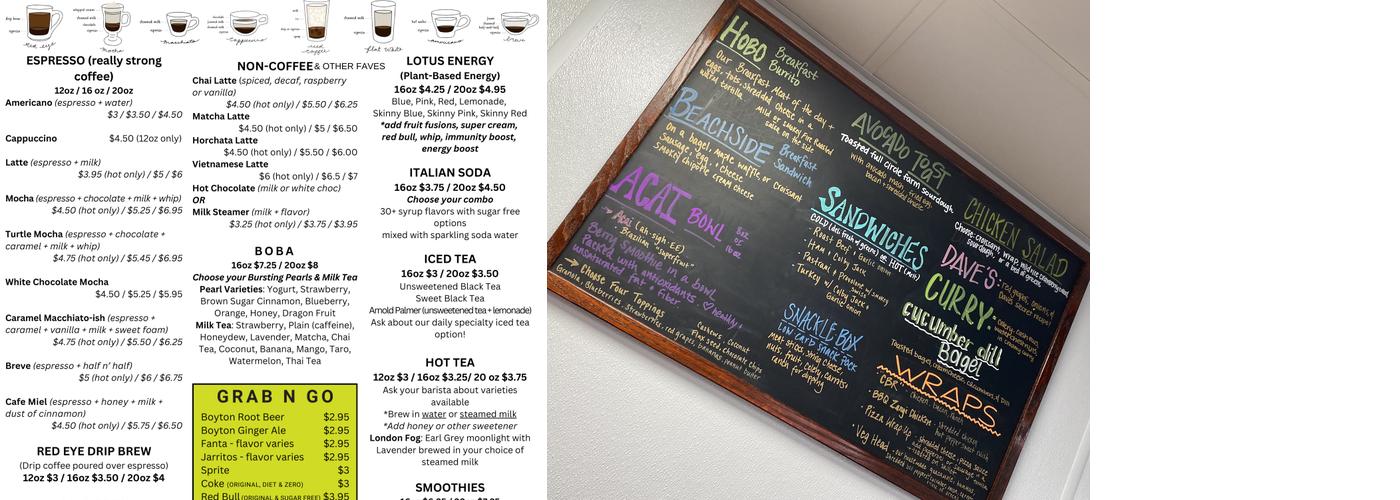 red eye
mocha
macchiato
cappuccino
iced coffee
flat white
Americano
breve
ESPRESSO (really strong
coffee)
12oz / 16 oz / 20oz
Americano (espresso + water)
$3 / $3.50 / $4.50
Cappuccino $4.50 (12oz only)
Latte (espresso + milk)
$3.95 (hot only) / $5 / $6
Mocha (espresso + chocolate + milk + whip)
$4.50 (hot only) / $5.25 / $6.95
Turtle Mocha (espresso + chocolate +
caramel + milk + whip)
$4.75 (hot only) / $5.45 / $6.95
White Chocolate Mocha
$4.50 / $5.25 / $5.95
Caramel Macchiato-ish (espresso +
caramel + vanilla + milk + sweet foam)
$4.75 (hot only) / $5.50 / $6.25
Breve (espresso + half n' half)
$5 (hot only) / $6 / $6.75
Cafe Miel (espresso + honey + milk +
dust of cinnamon)
$4.50 (hot only) / $5.75 / $6.50
RED EYE DRIP BREW
(Drip coffee poured over espresso)
12oz $3 / 16oz $3.50 / 20oz $4
NON-COFFEE & OTHER FAVES
Chai Latte (spiced, decaf, raspberry
or vanilla)
$4.50 (hot only) / $5.50 / $6.25
Matcha Latte
$4.50 (hot only) / $5 / $6.50
Horchata Latte
$4.50 (hot only) / $5.50 / $6.00
Vietnamese Latte
$6 (hot only) / $6.5 / $7
Hot Chocolate (milk or white choc)
OR
Milk Steamer (milk + flavor)
$3.25 (hot only) / $3.75 / $3.95
BOBA
16oz $7.25 / 20oz $8
Choose your Bursting Pearls & Milk Tea
Pearl Varieties: Yogurt, Strawberry,
Brown Sugar Cinnamon, Blueberry,
Orange, Honey, Dragon Fruit
Milk Tea: Strawberry, Plain (caffeine),
Honeydew, Lavender, Matcha, Chai
Tea, Coconut, Banana, Mango, Taro,
Watermelon, Thai Tea
GRAB N GO
Boyton Root Beer $2.95
Boyton Ginger Ale $2.95
Fanta - flavor varies $2.95
Jarritos - flavor varies $2.95
Sprite $3
Coke (ORIGINAL, DIET & ZERO) $3
Red Bull (ORIGINAL & SUGAR FREE) $3.95
LOTUS ENERGY
(Plant-Based Energy)
16oz $4.25 / 20oz $4.95
Blue, Pink, Red, Lemonade,
Skinny Blue, Skinny Pink, Skinny Red
*add fruit fusions, super cream,
red bull, whip, immunity boost,
energy boost
ITALIAN SODA
16oz $3.75 / 20oz $4.50
Choose your combo
30+ syrup flavors with sugar free
options
mixed with sparkling soda water
ICED TEA
16oz $3 / 20oz $3.50
Unsweetened Black Tea
Sweet Black Tea
Arnold Palmer (unsweetened tea + lemonade)
Ask about our daily specialty iced tea
option!
HOT TEA
12oz $3 / 16oz $3.25/ 20 oz $3.75
Ask your barista about varieties
available
*Brew in water or steamed milk
*Add honey or other sweetener
London Fog: Earl Grey moonlight with
Lavender brewed in your choice of
steamed milk
SMOOTHIES
HOBO Breakfast
Burrito
Our Breakfast Meat of the day +
eggs, tots, shredded cheese in a
warm tortilla
mild or smokey fire roasted
salsa on the side
BEACHSIDE Breakfast
Sandwich
on a bagel, maple waffle, or croissant
sausage, egg, + cheese
smokey chipotle cream cheese
ACAI BOWL 8oz
or
16oz
→ Acai (ah-sigh-EE)
- Brazilian "superfruit"
Berry smoothie in a bowl
packed with antioxidants, healthy
unsaturated fat + fiber
→ Choose Four Toppings
Granola, Blueberries, strawberries, red grapes, bananas, peanut butter
Cashews, Coconut,
Flax seed, chocolate chips
AVOCADO TOAST
Toasted full circle farm sourdough
with avocado mash, fried egg,
bacon + shredded cheese
SANDWICHES
COLD (deli fresh of greens) or HOT (melt)
- Roast Beef + Garlic onion
- Ham + Colby Jack
- Pastrami + Provolone w/ smokey
swiss
- Turkey w/ Colby Jack
Garlic onion
SNACKLE BOX
Low-carb snack pack
meat sticks, string cheese,
nuts, fruit, celery, carrots,
ranch for dipping
CHICKEN SALAD
DAVE'S
CURRY:
cucumber dill
Bagel
Toasted bagel, cream cheese, cucumbers, + dill
WRAPS
- CBR -
- BBQ Zangi Chicken -
- Pizza Wrap Up -
- Veg Head